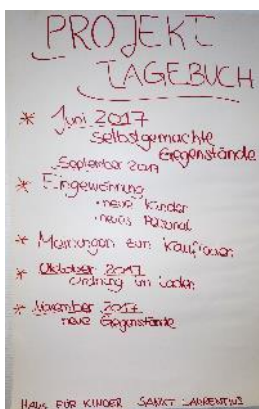 PROJEKT
TAGEBUCH
* Juni 2017
Selbstgemachte
Gegenstände
September 2017
* Eingewöhnung
• neue Kinder
• neues Personal
* Meinungen zum
* Oktober 2017
Ordnung im Laden
* November 2017
neue Gegenstände
HAUS FÜR KINDER SANKT LAURENTIUS